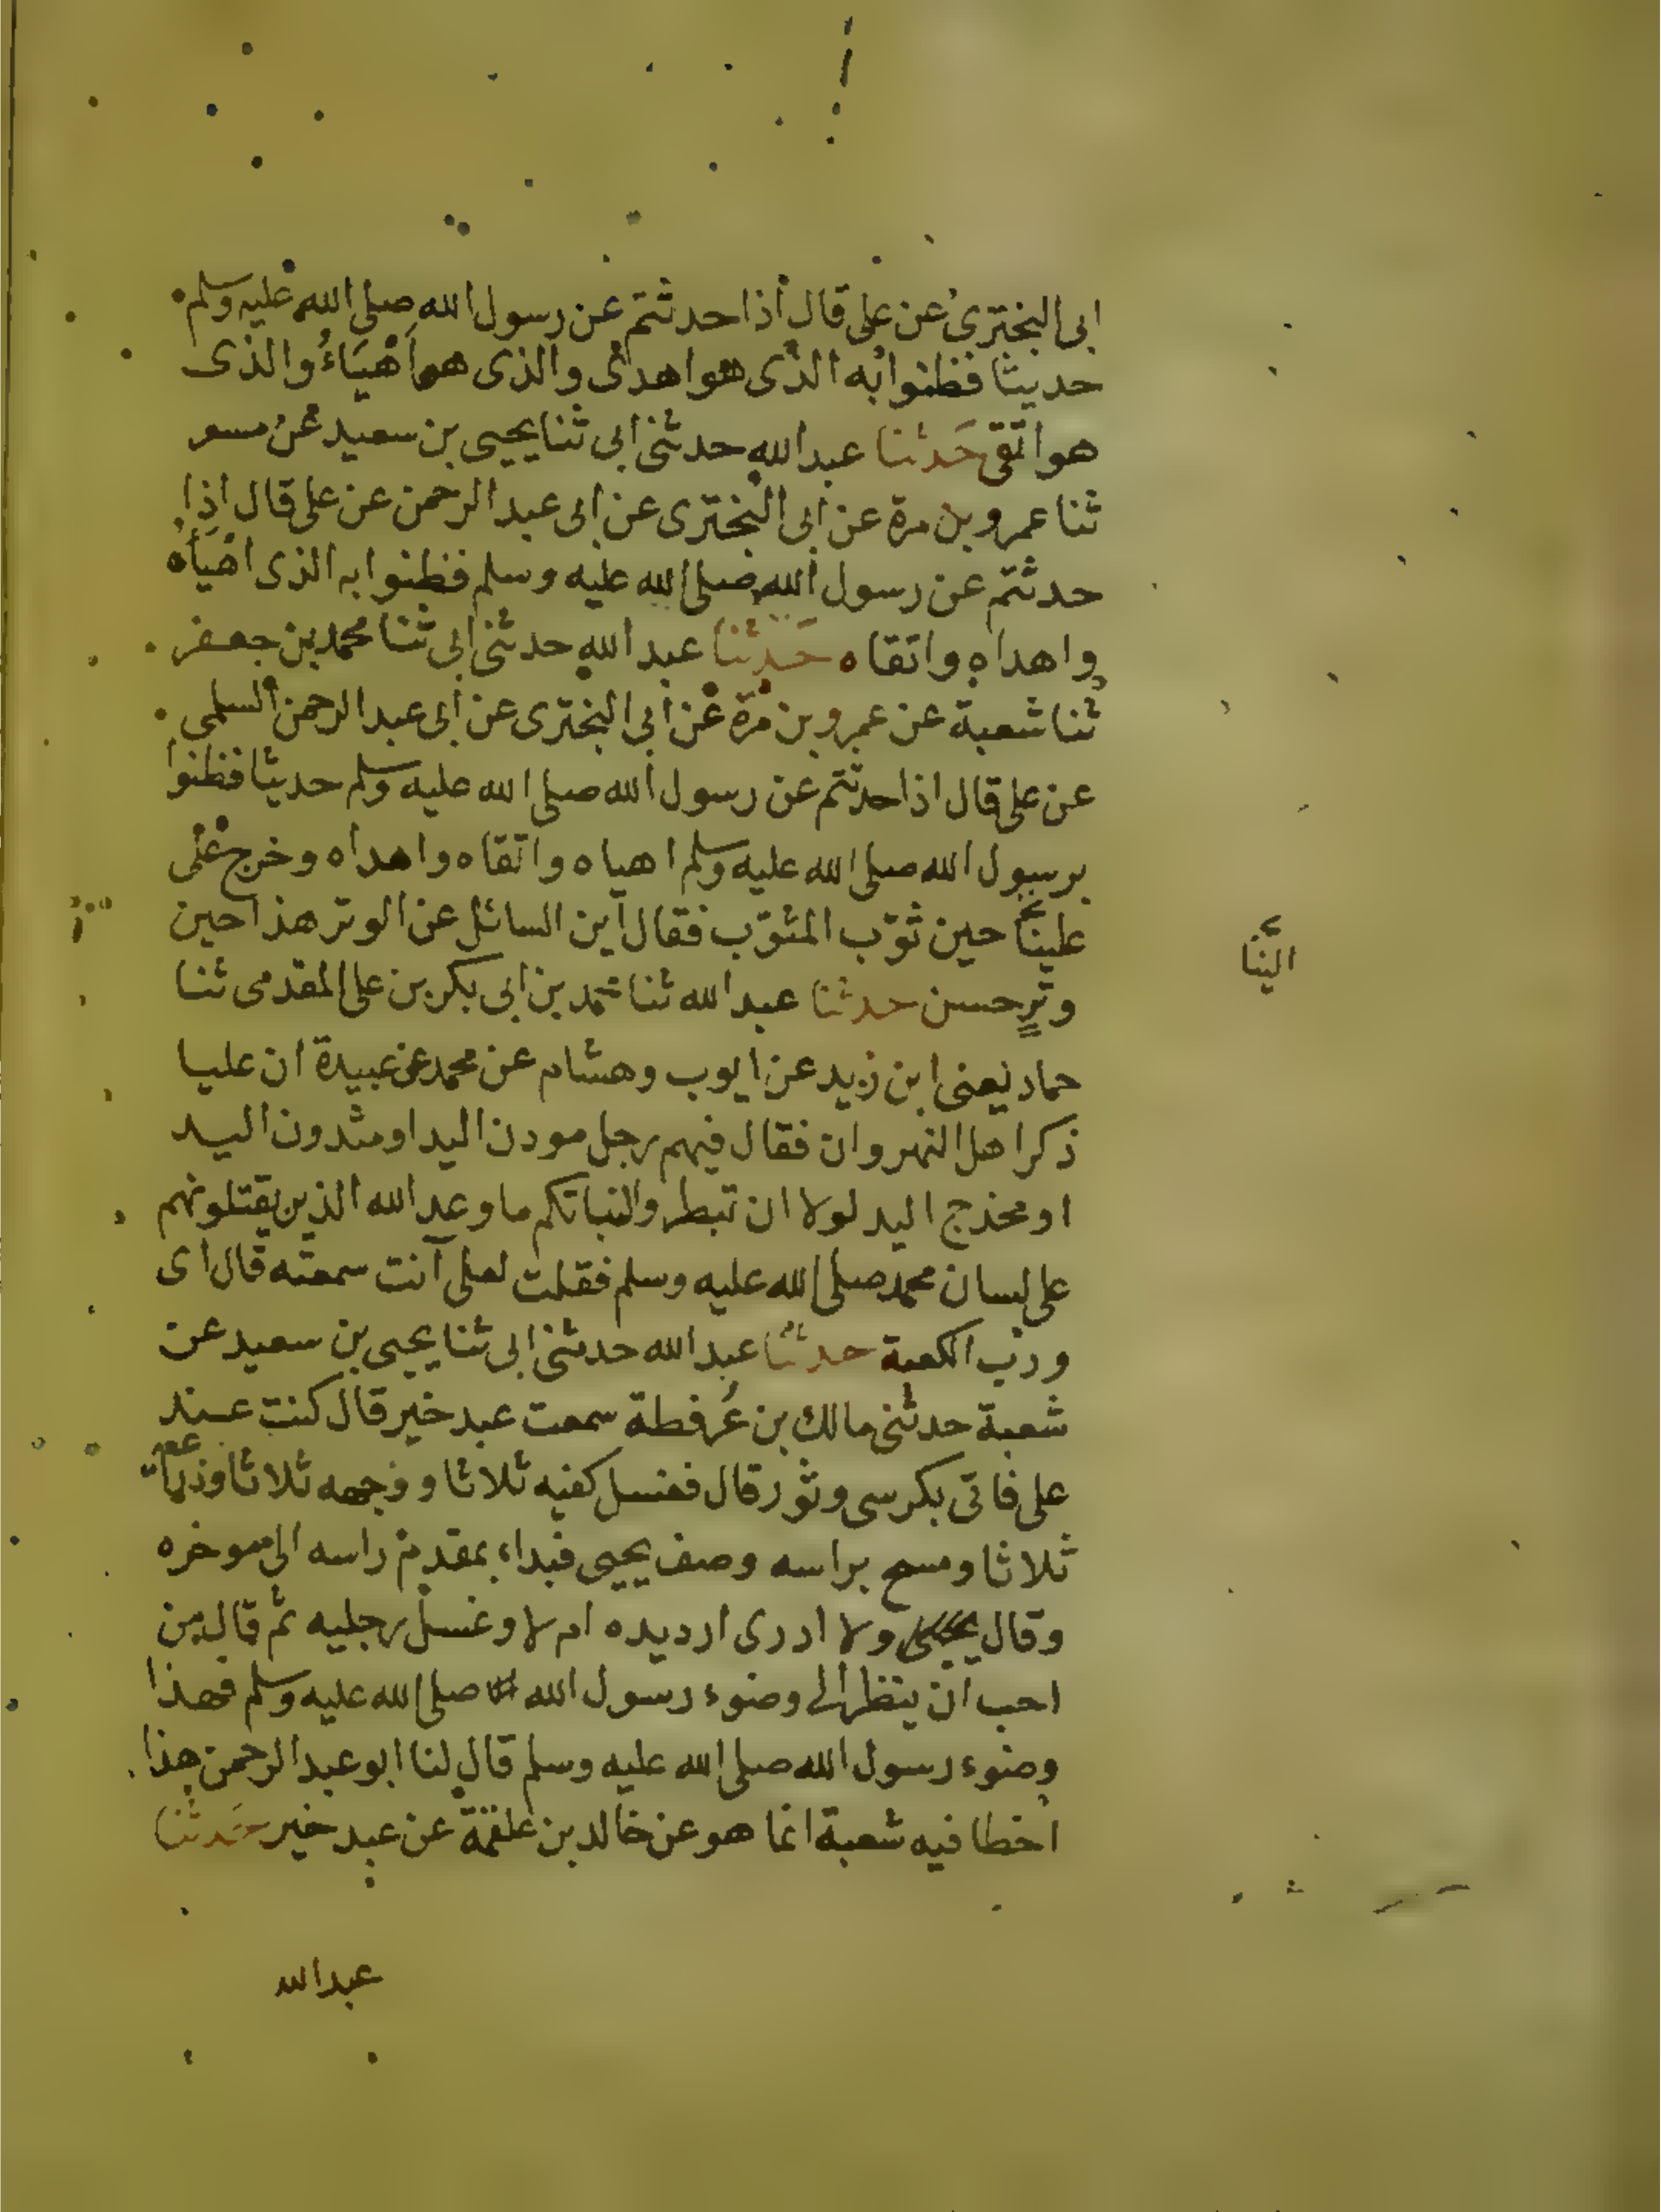 ابى البخترى عن على قال اذا حدثتم عن رسول الله صلى الله عليه وسلم
حديثا فظنوا به الذى هو اهدى والذى هو اهياء والذى
هو اتقى حدثنا عبد الله حدثنى ابى ثنا يحيى بن سعيد عن مسعر
ثنا عمرو بن مرة عن ابى البخترى عن ابى عبد الرحمن عن على قال اذا
حدثتم عن رسول الله صلى الله عليه وسلم فظنوا به الذى اهيأه
واهداه واتقاه حدثنا عبد الله حدثنى ابى ثنا محمد بن جعفر
ثنا شعبة عن عمرو بن مرة عن ابى البخترى عن ابى عبد الرحمن السلمى
عن على قال اذا حدثتم عن رسول الله صلى الله عليه وسلم حديثا فظنوا
برسول الله صلى الله عليه وسلم اهياه واتقاه واهداه وخرج على
علينا حين ثوّب المثوّب فقال اين السائل عن الوتر هذا حين
الينا
وترٍ حسن حدثنا عبد الله ثنا محمد بن ابى بكر بن على المقدمى ثنا
حماد يعنى ابن زيد عن ايوب وهشام عن محمد عن عبيدة ان عليا
ذكر اهل النهروان فقال فيهم رجل مودن اليد او مثدون اليد
او مخدج اليد لولا ان تبطروا لنباتكم ما وعد الله الذين يقتلونهم
على لسان محمد صلى الله عليه وسلم فقلت لعلى آنت سمعته قال اى
ورب الكعبة حدثنا عبد الله حدثنى ابى ثنا يحيى بن سعيد عن
شعبة حدثنى مالك بن عُرفطة سمعت عبد خير قال كنت عند
على فاتى بكرسى وثور قال فغسل كفيه ثلاثا ووجهه ثلاثا وذراعيه
ثلاثا ومسح براسه وصف يحيى فبداء بمقدم راسه الى موخره
وقال يحيى ولا ادرى ارديده ام لا وغسل رجليه ثم قال من
احب ان ينظر الى وضوء رسول الله صلى الله عليه وسلم فهذا
وضوء رسول الله صلى الله عليه وسلم قال لنا ابو عبد الرحمن هذا
اخطا فيه شعبة انما هو عن خالد بن علقمة عن عبد خير حدثنا
عبد الله